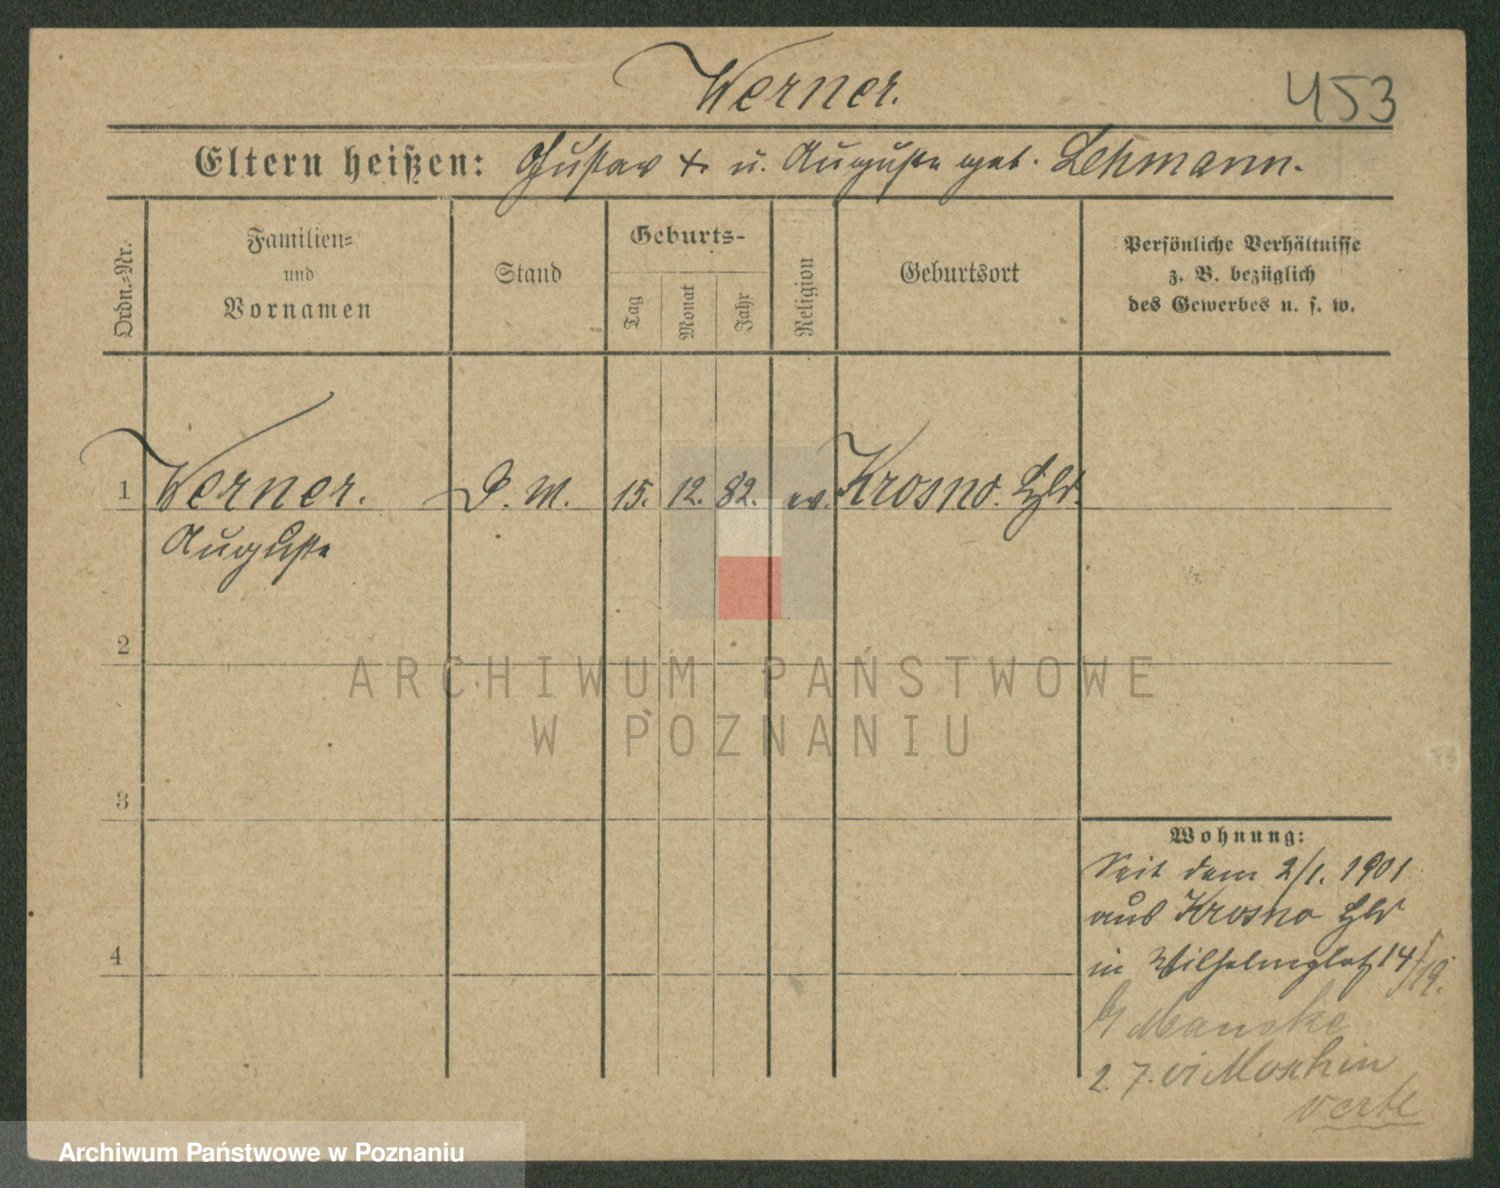 Werner.
453
Eltern heißen: Gustav †. u. Auguste geb. Lehmann.
Ordn.-Nr.
Familien-
und
Vornamen
Stand
Geburts-
Tag
Monat
Jahr
Religion
Geburtsort
Persönliche Verhältnisse
z. B. bezüglich
des Gewerbes u. s. w.
1 Werner. D. M. 15. 12. 82. ev. Krosno. Hld.
Auguste
2
3
4
Wohnung:
Seit dem 2/1. 1901
aus Krosno Hld
in Wilhelmplatz 14/19.
Manske
2. 7. 01 Moschin
verte
ARCHIWUM PAŃSTWOWE
W POZNANIU
Archiwum Państwowe w Poznaniu